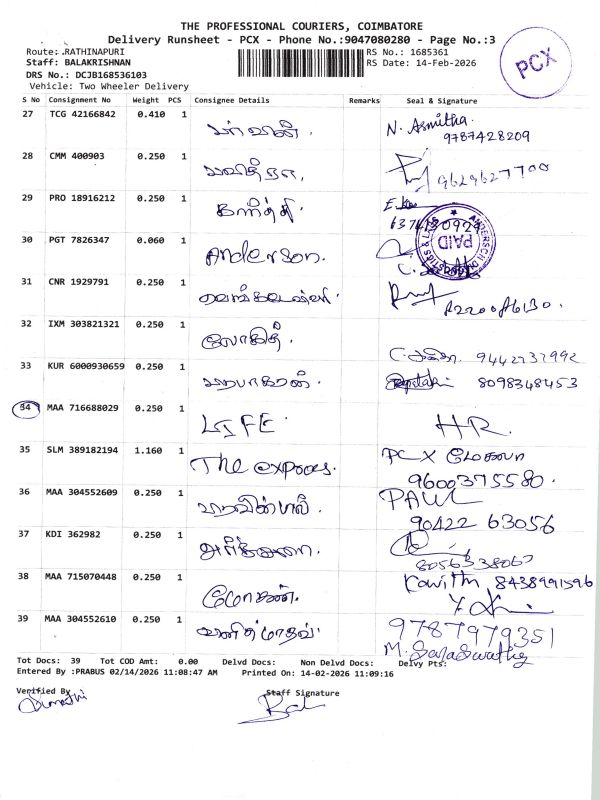 THE PROFESSIONAL COURIERS, COIMBATORE
Delivery Runsheet - PCX - Phone No.:9047080280 - Page No.:3
Route: RATHINAPURI RS No.: 1685361
Staff: BALAKRISHNAN RS Date: 14-Feb-2026
DRS No.: DCJB168536103
Vehicle: Two Wheeler Delivery
PCX
S No Consignment No Weight PCS Consignee Details Remarks Seal & Signature
27 TCG 42166842 0.410 1 N. Asmitha.
9787428209
28 CMM 400903 0.250 1 9629627700
29 PRO 18916212 0.250 1
30 PGT 7826347 0.060 1 Anderson. PAID
31 CNR 1929791 0.250 1
32 IXM 303821321 0.250 1 லோகித்.
9442737992
33 KUR 6000930659 0.250 1 8098348453
34 MAA 716688029 0.250 1 LIFE. HR.
35 SLM 389182194 1.160 1 The express. PCX மேகலா
9600375580.
36 MAA 304552609 0.250 1 PAUL
90422 63056
37 KDI 362982 0.250 1
8056338067
38 MAA 715070448 0.250 1 மோகன். Kawith 8438991596
39 MAA 304552610 0.250 1 9787979351
M. Saraswathy
Tot Docs: 39 Tot COD Amt: 0.00 Delvd Docs: Non Delvd Docs: Delvy Pts:
Entered By :PRABUS 02/14/2026 11:08:47 AM Printed On: 14-02-2026 11:09:16
Verified By Staff Signature